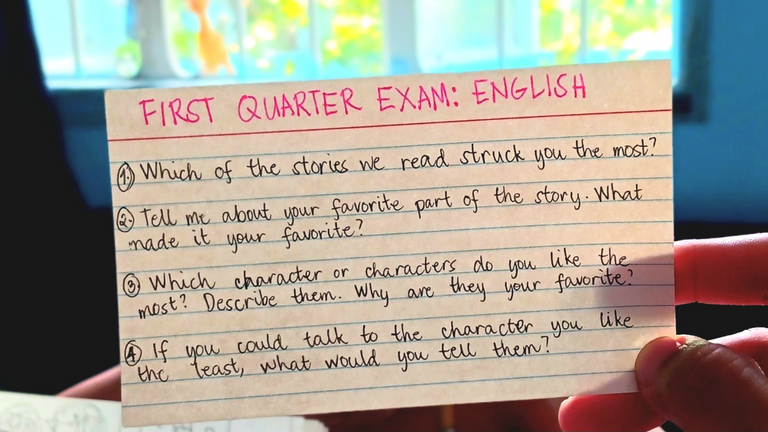 FIRST QUARTER EXAM: ENGLISH
1. Which of the stories we read struck you the most?
2. Tell me about your favorite part of the story. What
made it your favorite?
3. Which character or characters do you like the
most? Describe them. Why are they your favorite?
4. If you could talk to the character you like
the least, what would you tell them?